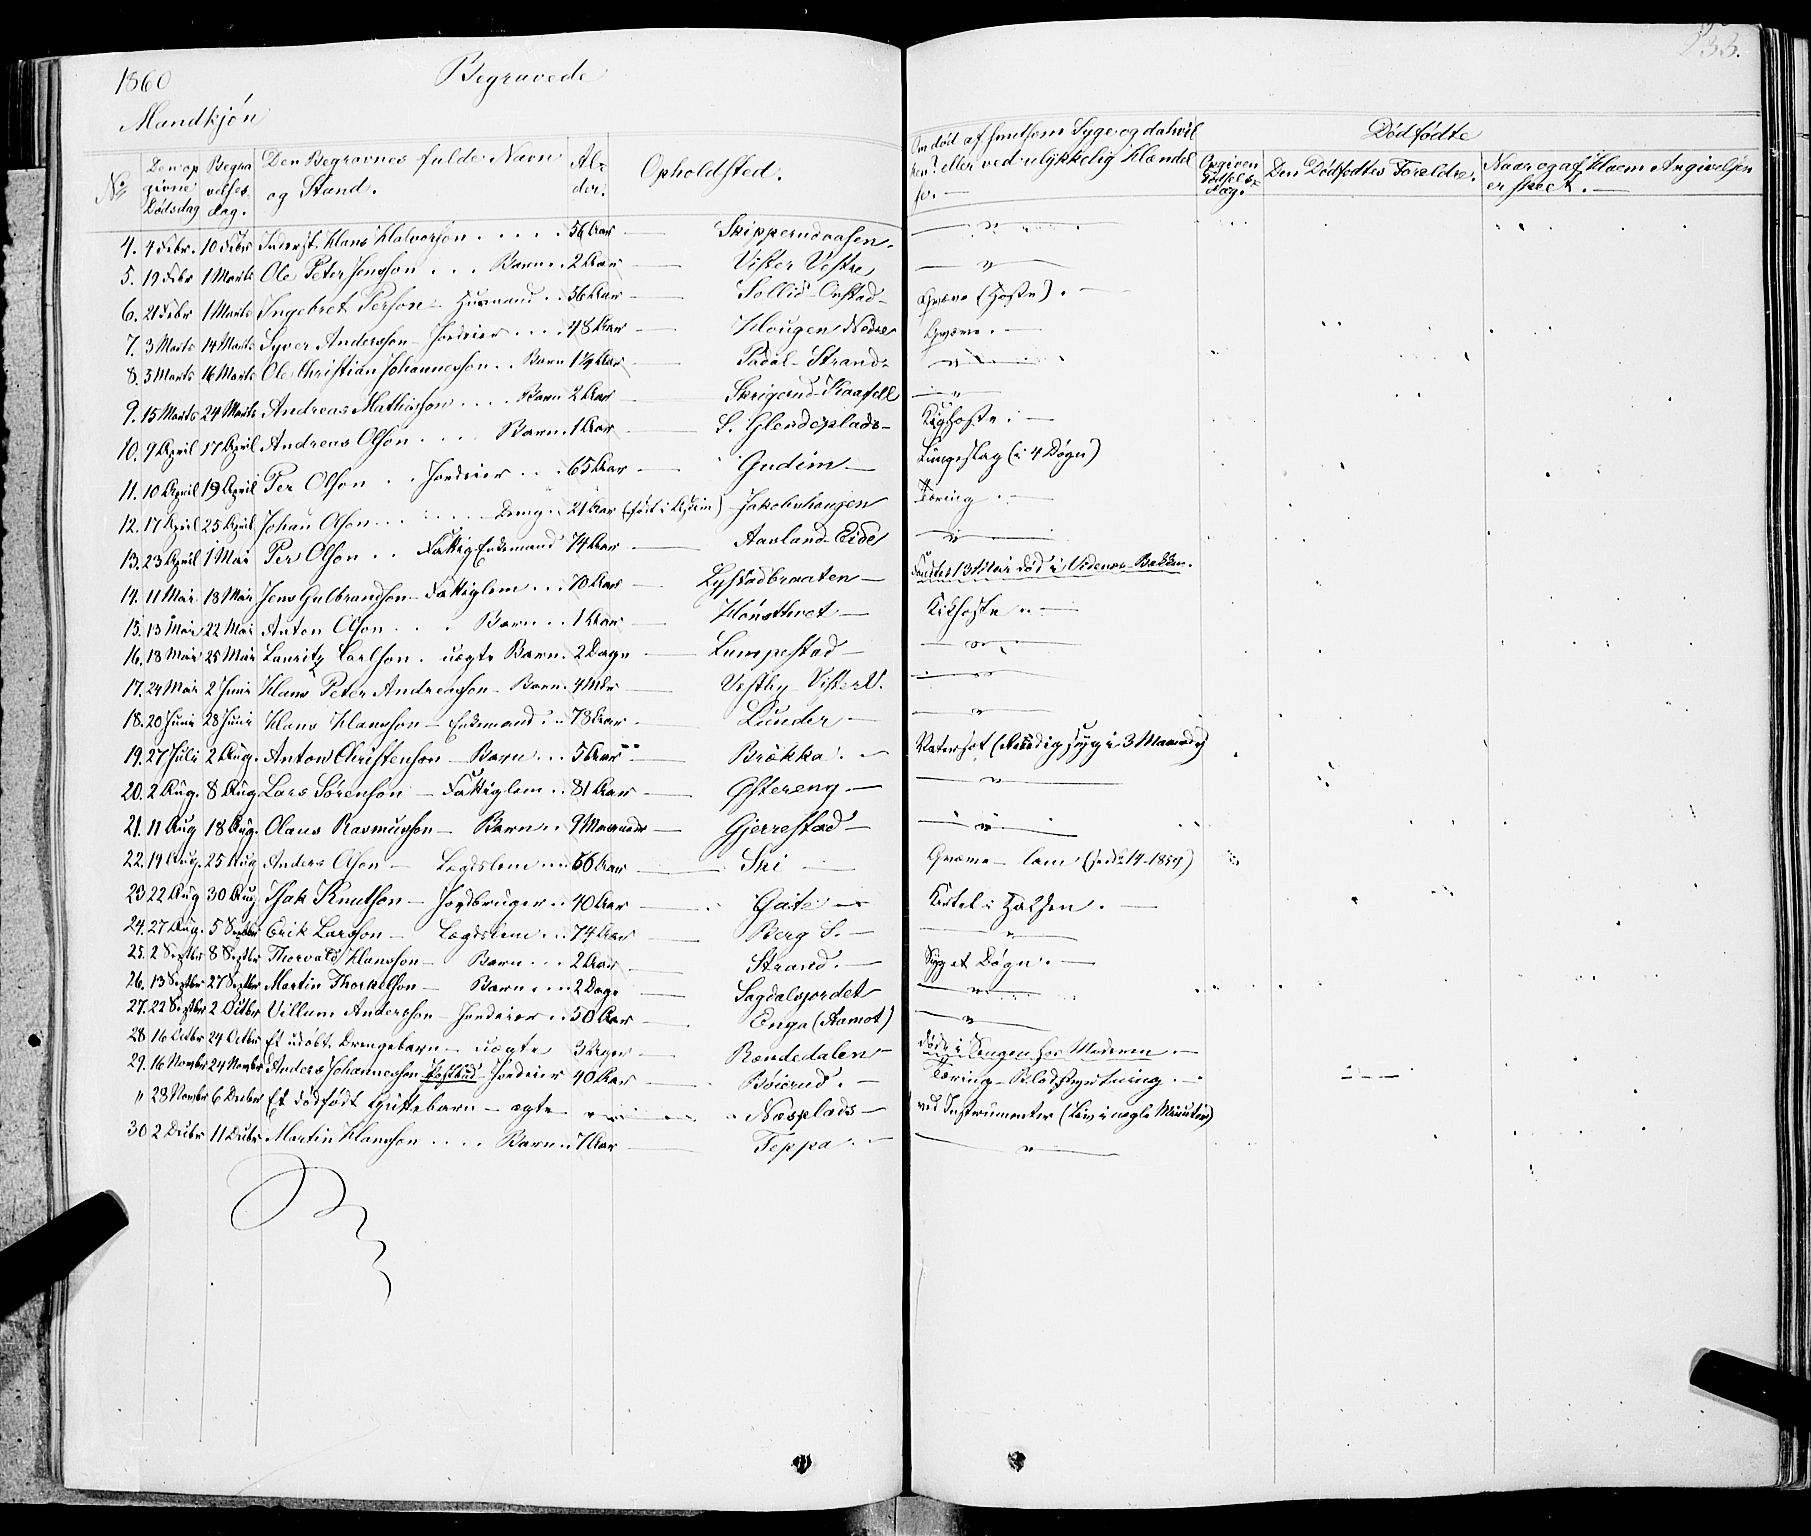 1860 Begravede 233.
Mandkjøn
No Den opgivne Dødsdag Begravelses Dag. Den Begravnes fulde Navn og Stand. Alder. Opholdsted. Om død af smitsom Syge og da hvilken? eller ved ulykkelig Hændelse. Opgiven Fødselsdag. Dødfødte Den Dødfødtes Forældre. Naar og af Hvem Angivelsen er skeet.
4. 4 Febr. 10 Febr Inderst. Hans Halvorson 56 Aar Skipperudaasen "
5. 19 Febr 1 Marts Ole Peter Jensson Barn 2 Aar Vister Vestre "
6. 21 Febr 1 Marts Ingebret Person Husmand 36 Aar Sollid Onstad (Hoste).
7. 3 Marts 14 Marts Syver Andersson Jordeier 48 Aar Hougen Nedre
8. 3 Marts 16 Marts Ole Christian Johannesson Barn 1¼ Aar Strand "
9. 15 Marts 24 Marts Andreas Mathisson Barn 2 Aar Skrigerud Kaafell "
10. 9 April 17 April Andreas Olson Barn 1 Aar S. Glendeplads Kighoste
11. 10 April 19 April Per Olson Jordeier 65 Aar Gudim Lungeslag (i 4 Døgn)
12. 17 April 25 April Johan Olson Dreng 21 Aar (født i ) Jakobshaugen Tæring
13. 23 April 1 Mai Per Olson Fattig Enkemand 74 Aar Aavland Eide "
14. 11 Mai 18 Mai Jens Gulbrandson Fattiglem 70 Aar Lystadbraaten død i Bakken.
15. 13 Mai 22 Mai Anton Olson Barn 1 Aar Hønsttvet Kikhoste
16. 18 Mai 25 Mai Lauritz Carlson uægte Barn 2 Dage Lumpestad "
17. 24 Mai 2 Juni Hans Peter Andreasson Barn 4 Mdr Vestby Vister V. "
18. 20 Juni 28 Juni Hans Hansson Enkemand 78 Aar Lunder "
19. 27 Juli 2 Aug. Anton Christenson Barn 5 Aar Brækka Vatersot (stedig syg i 3 Maaneder)
20. 2 Aug. 8 Aug Lars Sörenson Fattiglem 81 Aar Østereng "
21. 11 Aug 18 Aug. Olaus Rasmusson Barn 9 Maaneder Gjerrestad "
22. 19 Aug. 25 Aug Anders Olson Lægdslem 66 Aar Ski lam
23 22 Aug 30 Aug Isak Knutson Jordbruger 40 Aar Gate i Halsen.
24. 27 Aug. 5 Septbr Erik Larsson Lægdslem 74 Aar Berg S. "
25. 2 Septbr 8 Septbr Thorvald Hansson Barn 2 Aar Strand. Syg et Døgn.
26. 13 Septbr 27 Septbr Martin Thorkelson Barn 2 Dage Sagdalsjordet "
27. 22 Septbr 2 Octbr Villum Andersson Jordeier 50 Aar Enga (Aamot) "
28 16 Octbr 24 Octbr Et udøbt Drengebarn uægte 3 Uger Rændedalen døde i Sengen hos Moderen.
29. 16 Novbr 24 Novbr Anders Johannesson Postbud Jordeier 40 Aar Bøierud. Tæring Blodspytning.
" 28 Novbr 6 Decbr Et dødfødt Guttebarn ægte " Næsplads ved Instrumenter (Liv i nogle Minuter)
30 2 Decbr 11 Decbr Martin Hansson Barn 7 Aar Teppa "